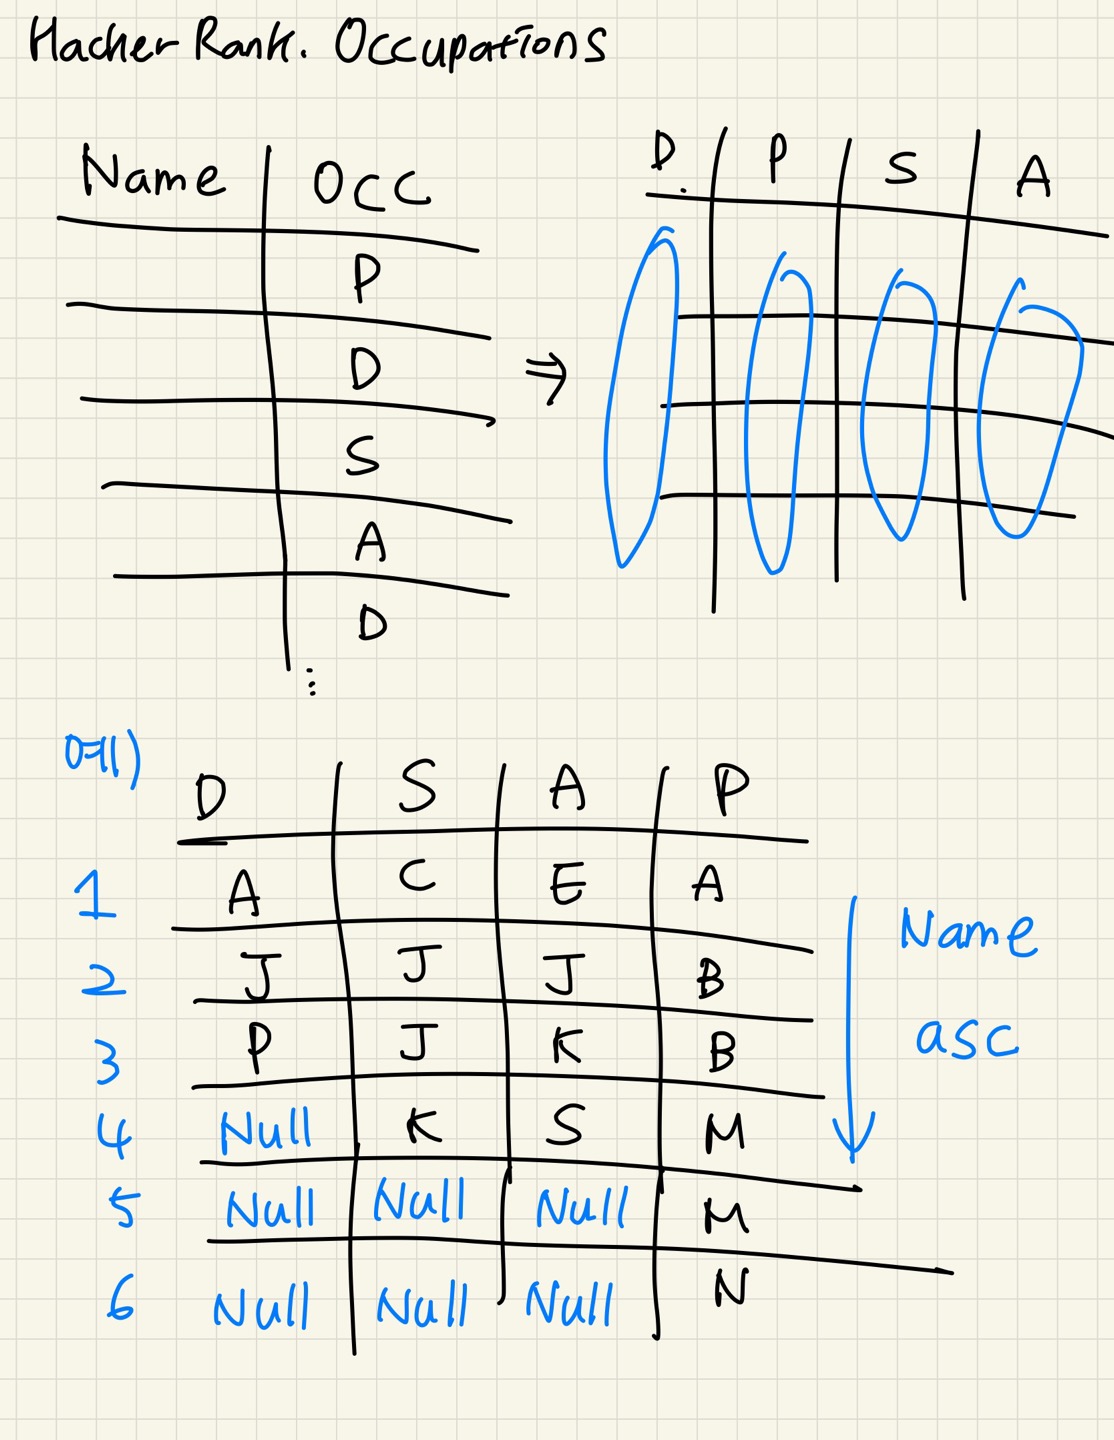 Hacker Rank. Occupations
Name OCC
P
D
S
A
D
⋮
⇒
D. P S A
예)
D S A P
1 A C E A
2 J J J B
3 P J K B
4 Null K S M
5 Null Null Null M
6 Null Null Null N
Name
asc